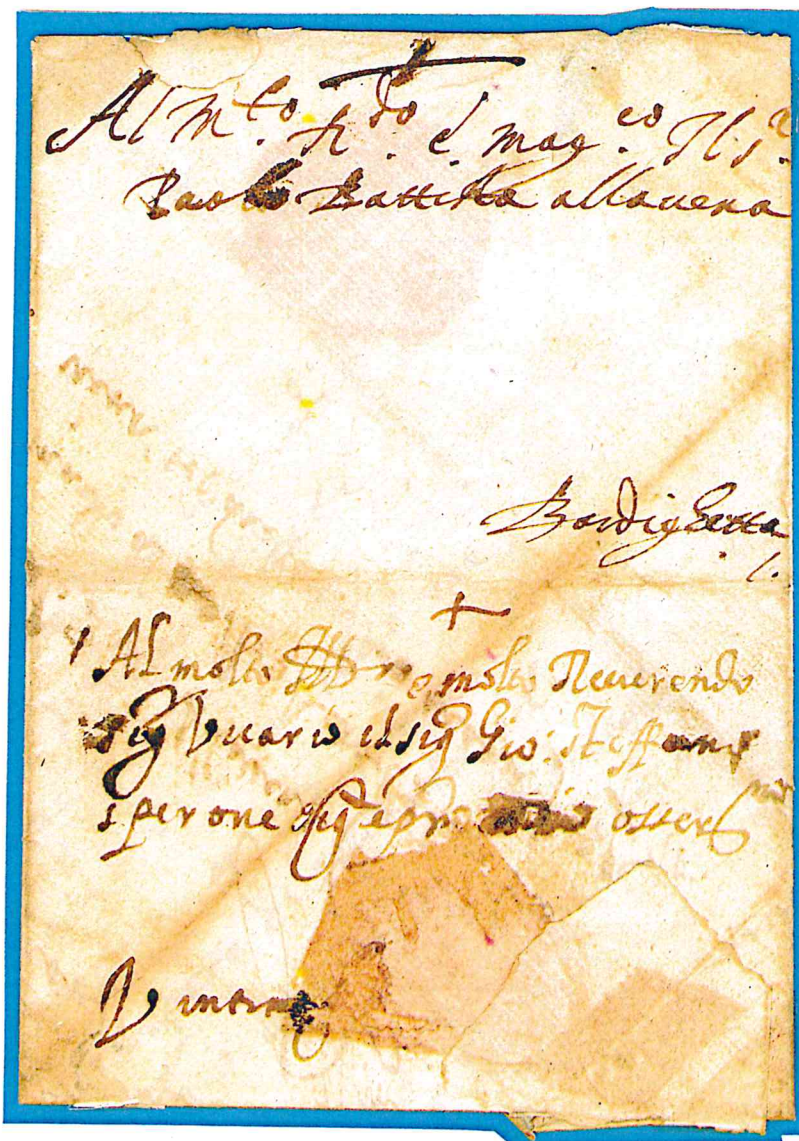 Al M.to R.do e mag.co Il S.r
Paolo Battista allavena
Bordighetta
Al molto e molto Reuerendo
sig Vicario il sig Gio: Steffano
sperone sig e pro osser